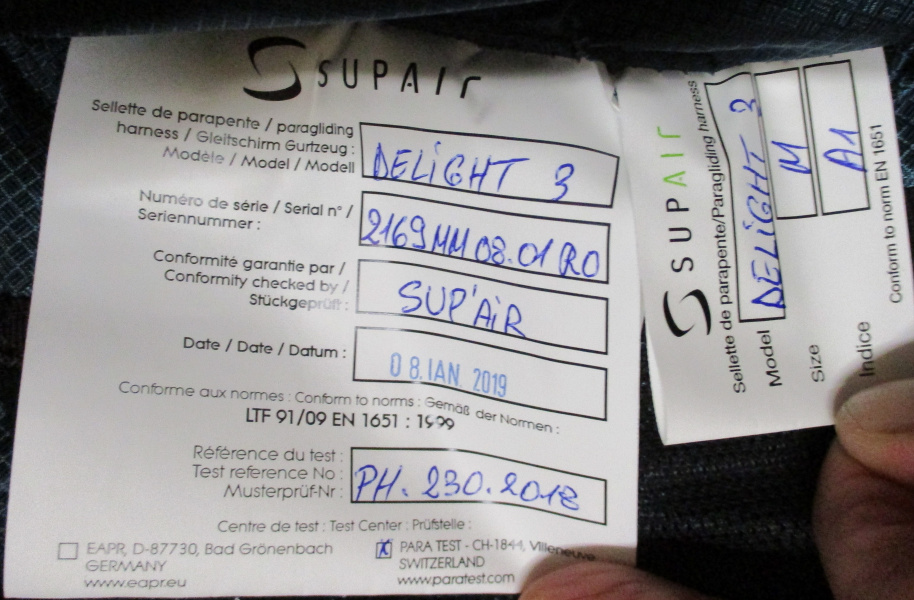 SUPAIR
Sellette de parapente / paragliding
harness / Gleitschirm Gurtzeug :
Modèle / Model / Modell
DELIGHT 3
Numéro de série / Serial n° /
Seriennummer :
2169MM08.01RO
Conformité garantie par /
Conformity checked by /
Stückgeprüft :
SUP'AiR
Date / Date / Datum :
08. JAN. 2019
Conforme aux normes : Conform to norms : Gemäß der Normen :
LTF 91/09 EN 1651 : 1999
Référence du test :
Test reference No :
Musterprüf-Nr :
PH. 230.2018
Centre de test : Test Center : Prüfstelle :
EAPR, D-87730, Bad Grönenbach
GERMANY
www.eapr.eu
X PARA TEST - CH-1844, Villeneuve
SWITZERLAND
www.paratest.com
SUPAIR
Sellette de parapente/Paragliding harness
Model DELIGHT 3
Size M
Indice A1
Conform to norm EN 1651